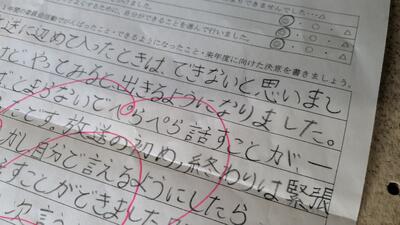 できませんでした…△
自分ができることを選んで行いました。
◎・○・△
の委員会活動でがんばったこと・できるようになったこと・来年度に向けた決意を書きましょう。
送に初めて入ったときは、できないと思いまし
けど、やってみると出きるようになりました。
とまらないでぺらぺら話すことが、一
とです。放送の初め、終わりは緊張
がし自分で言えるようにしたら
すことができました